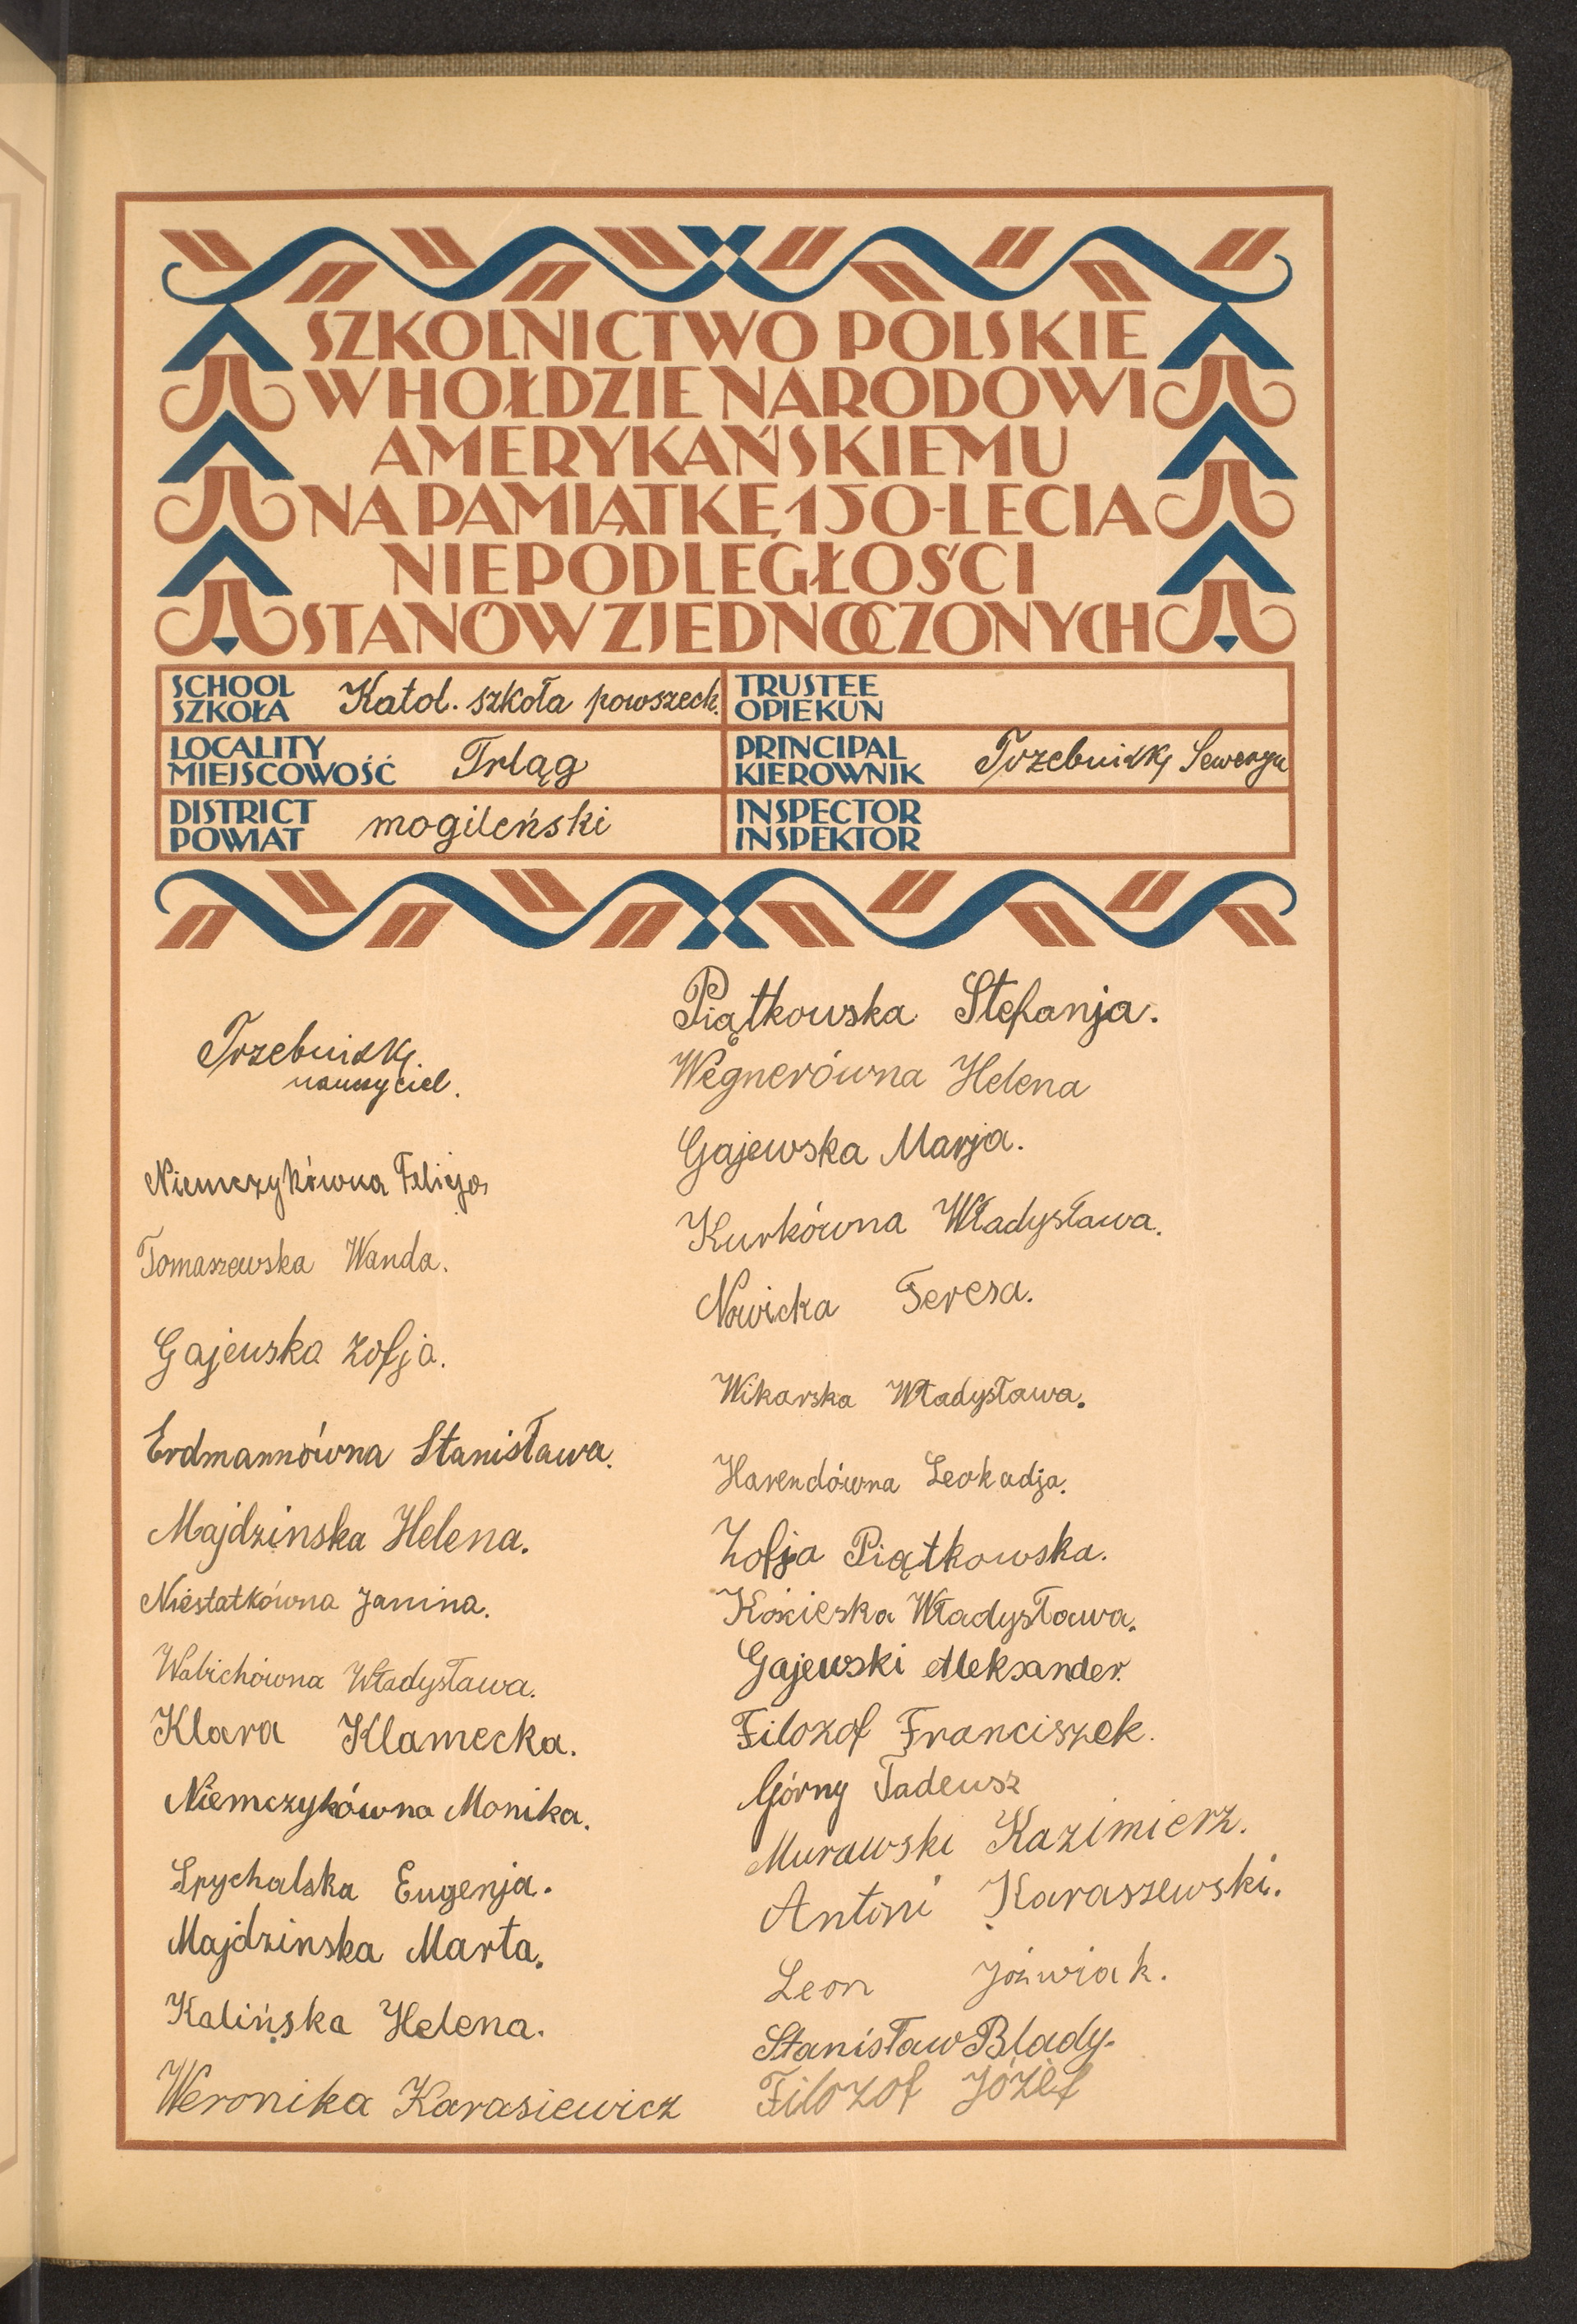 SZKOLNICTWO POLSKIE
W HOŁDZIE NARODOWI
AMERYKAŃSKIEMU
NA PAMIĄTKĘ 150-LECIA
NIEPODLEGŁOŚCI
STANÓW ZJEDNOCZONYCH
SCHOOL
SZKOŁA
Katol. szkoła powszech.
TRUSTEE
OPIEKUN
LOCALITY
MIEJSCOWOŚĆ
Trląg
PRINCIPAL
KIEROWNIK
Trzebniak Seweryn
DISTRICT
POWIAT
mogileński
INSPECTOR
INSPEKTOR
Trzebniak
nauczyciel.
Niemczykówna Felicja
Tomaszewska Wanda.
Gajewska Zofja.
Erdmannówna Stanisława.
Majdzinska Helena.
Niestatkówna Janina.
Walichówna Władysława.
Klara Klamecka.
Niemczykówna Monika.
Spychalska Eugenja.
Majdzinska Marta.
Kalińska Helena.
Weronika Karasiewicz
Piątkowska Stefanja.
Wegnerówna Helena
Gajewska Marja.
Kurkówna Władysława.
Nowicka Teresa.
Wikarska Władysława.
Harendówna Leokadja.
Zofja Piątkowska.
Kościeska Władysława.
Gajewski Aleksander.
Filozof Franciszek.
Górny Tadeusz
Murawski Kazimierz.
Antoni Karaszewski.
Leon Jóźwiak.
Stanisław Blady.
Filozof Józef